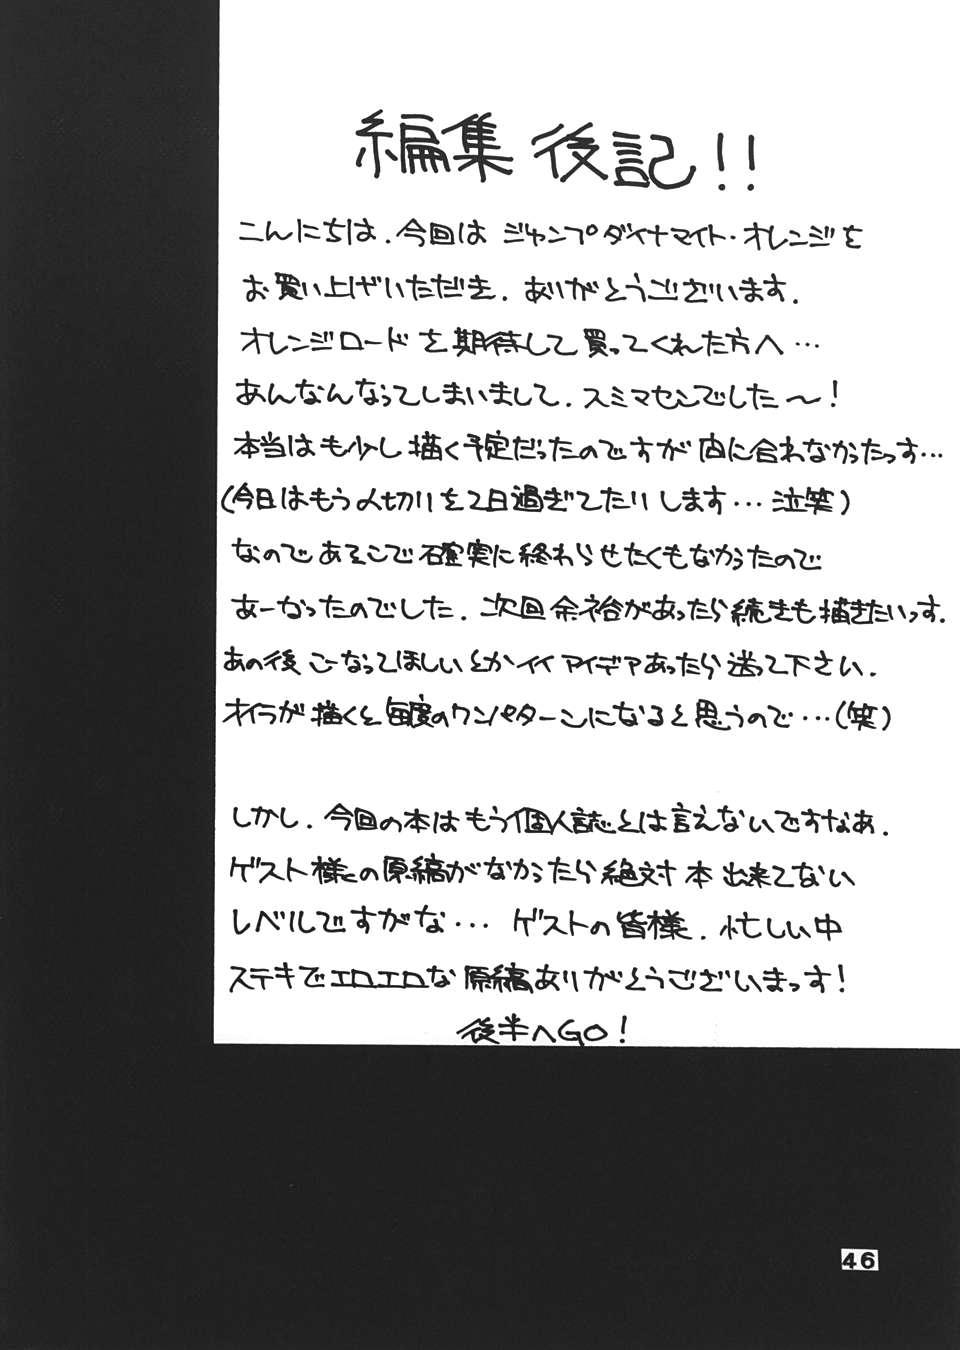 編集後記!!
こんにちは.今回はジャンプダイナマイト・オレンジを
お買い上げいただき.ありがとうございます.
オレンジロードを期待して買ってくれた方へ…
あんなんなってしまいまして.スミマセンでした〜!
本当はも少し描く予定だったのですが間に合わなかったっす…
(今日はもう〆切りを2日過ぎてたりします…泣笑)
なのであそこで確実に終わらせたくもなかったので
あーなったのでした.次回余裕があったら続きも描きたいっす.
あの後こーなってほしいとかイイアイデアあったら送って下さい.
オイラが描くと毎度のワンパターンになると思うので…(笑)
しかし.今回の本はもう個人誌とは言えないですなあ.
ゲスト様の原稿がなかったら絶対本出来てない
レベルですがな…ゲストの皆様.忙しい中
ステキでエロエロな原稿ありがとうございまっす!
後半へGO!
46